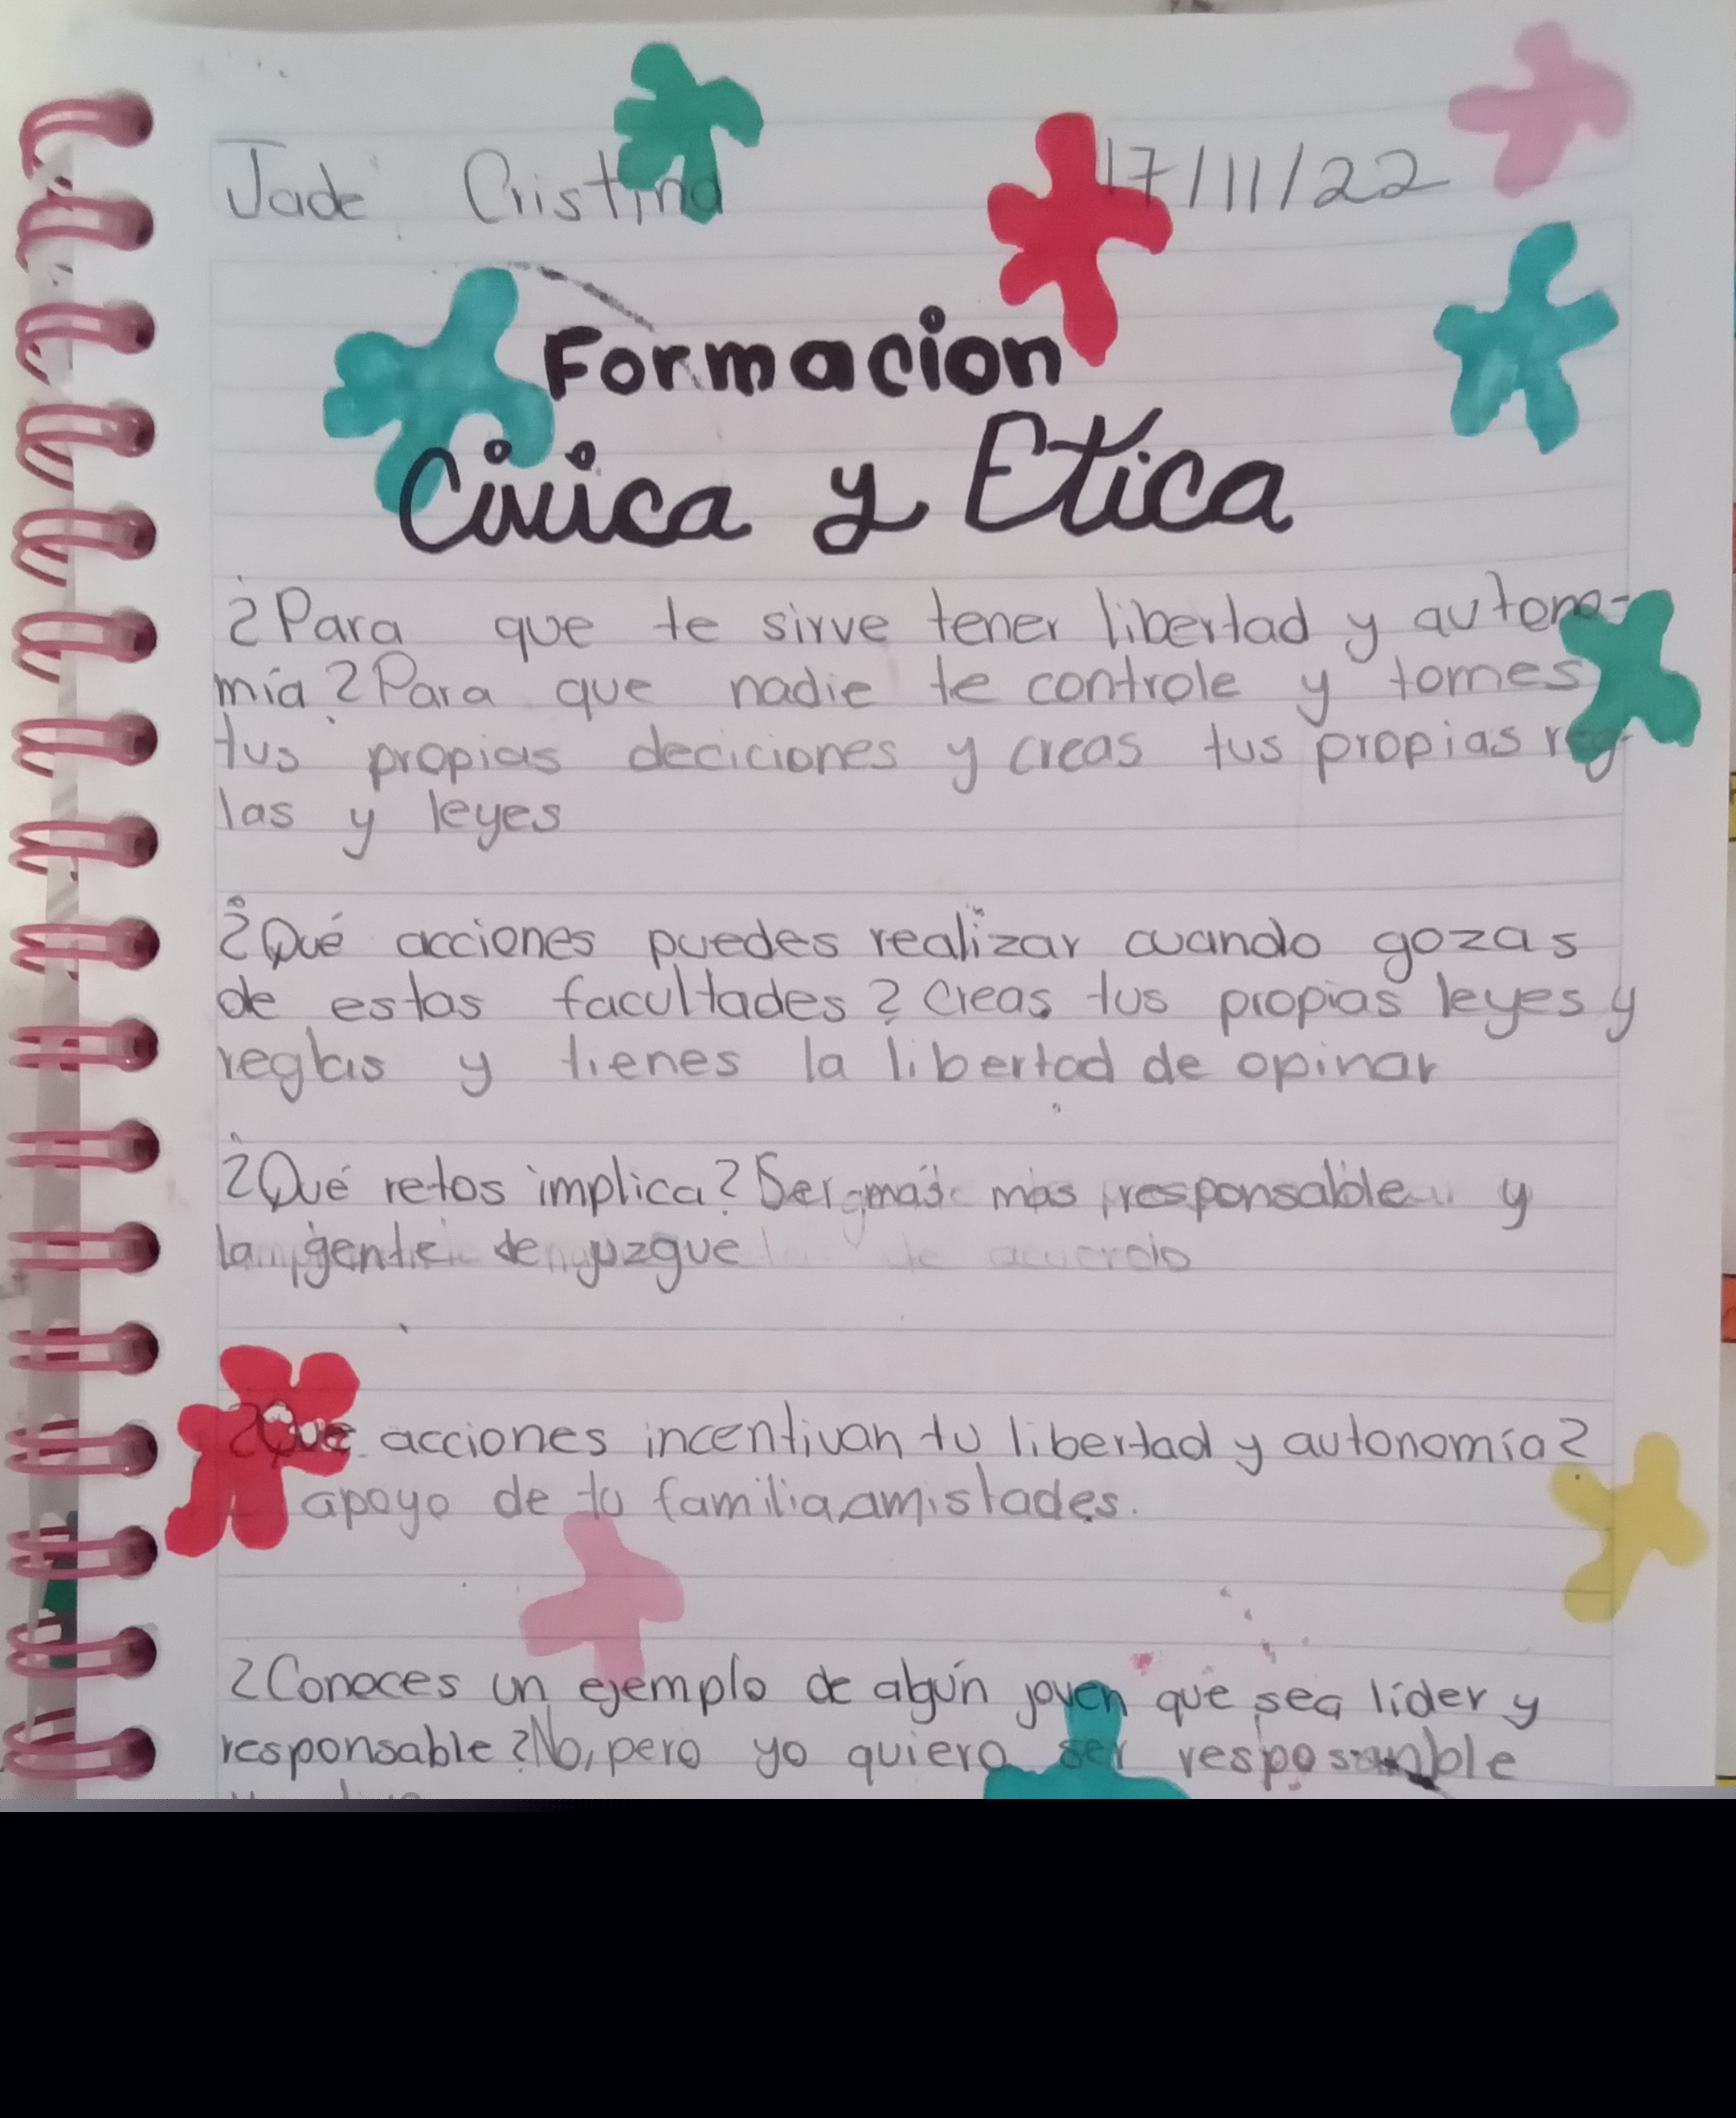 Jade Cristina 17/11/22
Formacion
Civica y Etica
¿Para que te sirve tener libertad y autono-
mía? Para que nadie te controle y tomes
tus propias deciciones y creas tus propias reg-
las y leyes
¿Qué acciones puedes realizar cuando gozas
de estas facultades? Creas tus propias leyes y
reglas y tienes la libertad de opinar
¿Qué retos implica? Ser más mas responsable y
la gente te juzgue
¿Que acciones incentivan tu libertad y autonomía?
apoyo de tu familia, amistades.
¿Conoces un ejemplo de algún joven que sea líder y
responsable? No, pero yo quiero ser resposanble